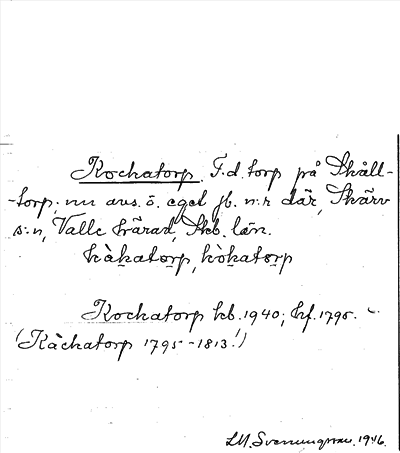 Kochatorp. F.d. torp på Skåll-
-torp; nu avs. o. eget jb. n:r där, Skärv
s:n, Valle härad, Skb. län.
kàkatorp, kòkatorp
Kochatorp kb. 1940; hf. 1795.
(Kàchatorp 1795-1813!)
Svenungsson. 1946.